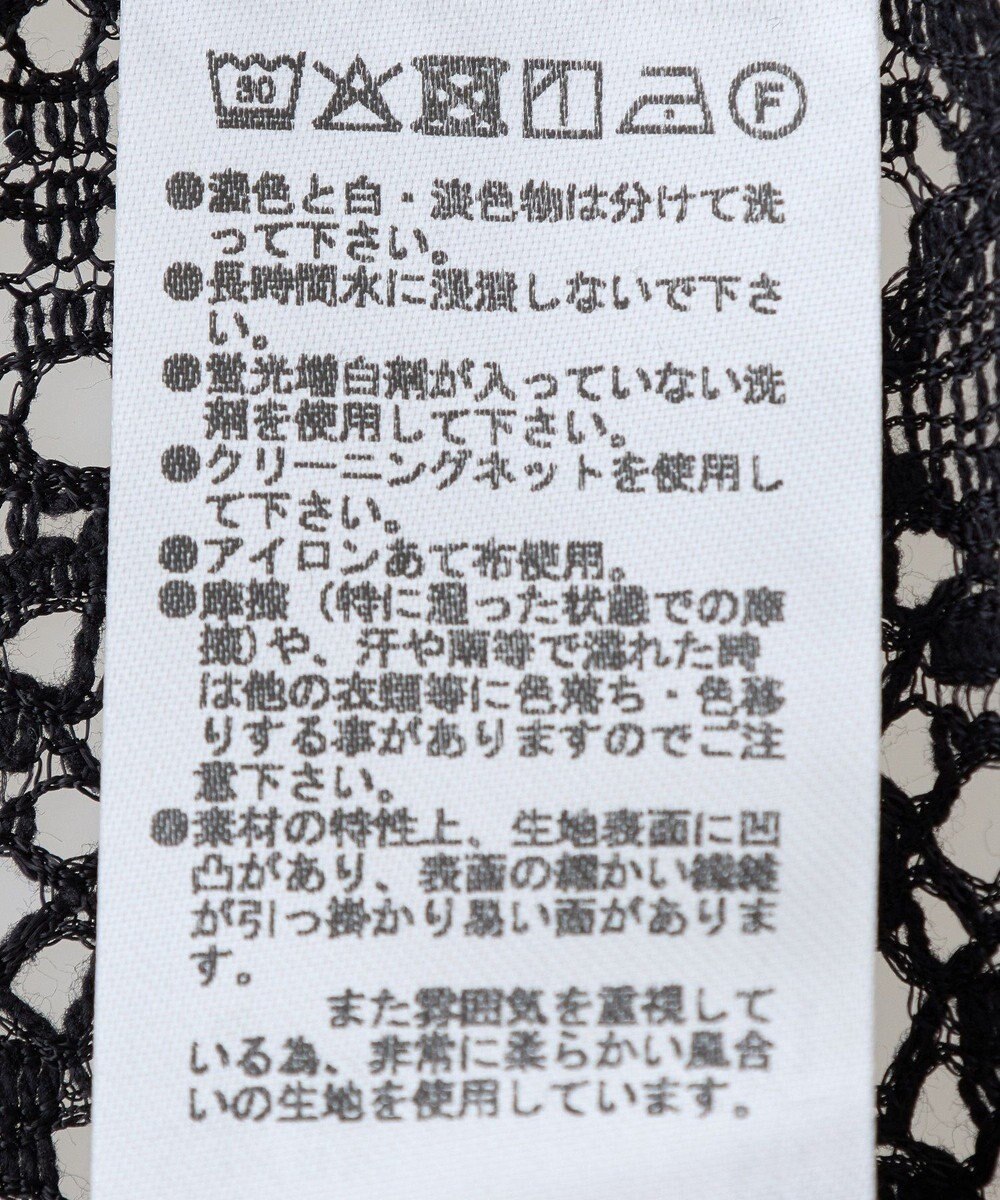 30
F
●濃色と白・淡色物は分けて洗
って下さい。
●長時間水に浸漬しないで下さ
い。
●蛍光増白剤が入っていない洗
剤を使用して下さい。
●クリーニングネットを使用し
て下さい。
●アイロンあて布使用。
●摩擦（特に湿った状態での摩
擦）や、汗や雨等で濡れた時
は他の衣類等に色落ち・色移
りする事がありますのでご注
意下さい。
●素材の特性上、生地表面に凹
凸があり、表面の細かい繊維
が引っ掛かり易い面がありま
す。
また雰囲気を重視して
いる為、非常に柔らかい風合
いの生地を使用しています。